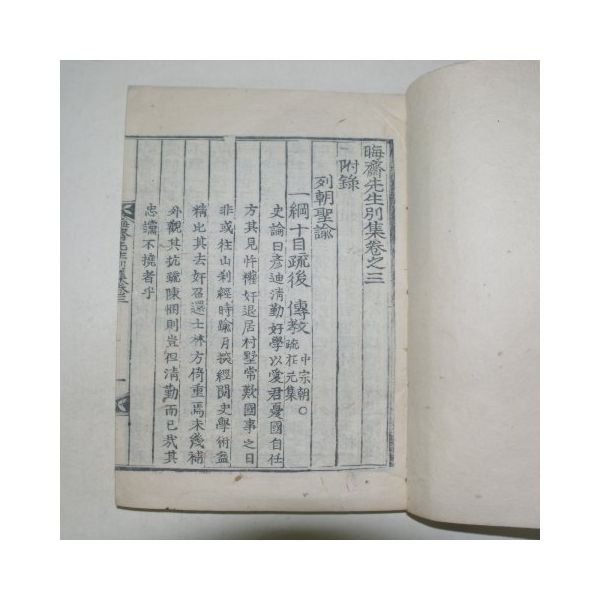 晦齋先生別集卷之三
附錄
列朝聖諭
一綱十目疏後 傳敎 中宗朝○疏在元集
史論曰彦迪淸勤好學以愛君憂國自任
方其見忤權奸退居村墅常歎國事之日
非或往山刹經時諭月披經閱史學術益
精比其去奸召還士林方倚重焉未幾補
外觀其抗疏陳悃則豈但淸勤而已哉其
忠讜不撓者乎
晦齋先生別集卷三
一